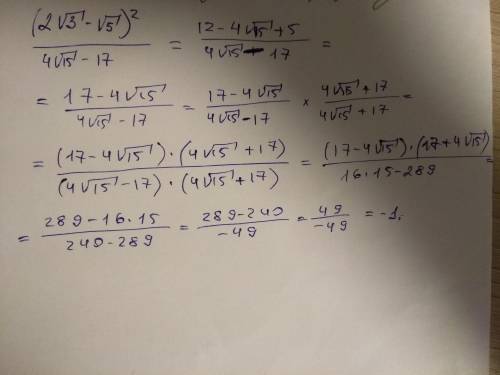 (2√3 - √5)² / (4√15 - 17) = (12 - 4√15 + 5) / (4√15 - 17) =
= (17 - 4√15) / (4√15 - 17) = (17 - 4√15) / (4√15 - 17) × (4√15 + 17) / (4√15 + 17) =
= ((17 - 4√15) · (4√15 + 17)) / ((4√15 - 17) · (4√15 + 17)) = ((17 - 4√15) · (17 + 4√15)) / (16·15 - 289) =
= (289 - 16·15) / (240 - 289) = (289 - 240) / (-49) = 49 / (-49) = -1.